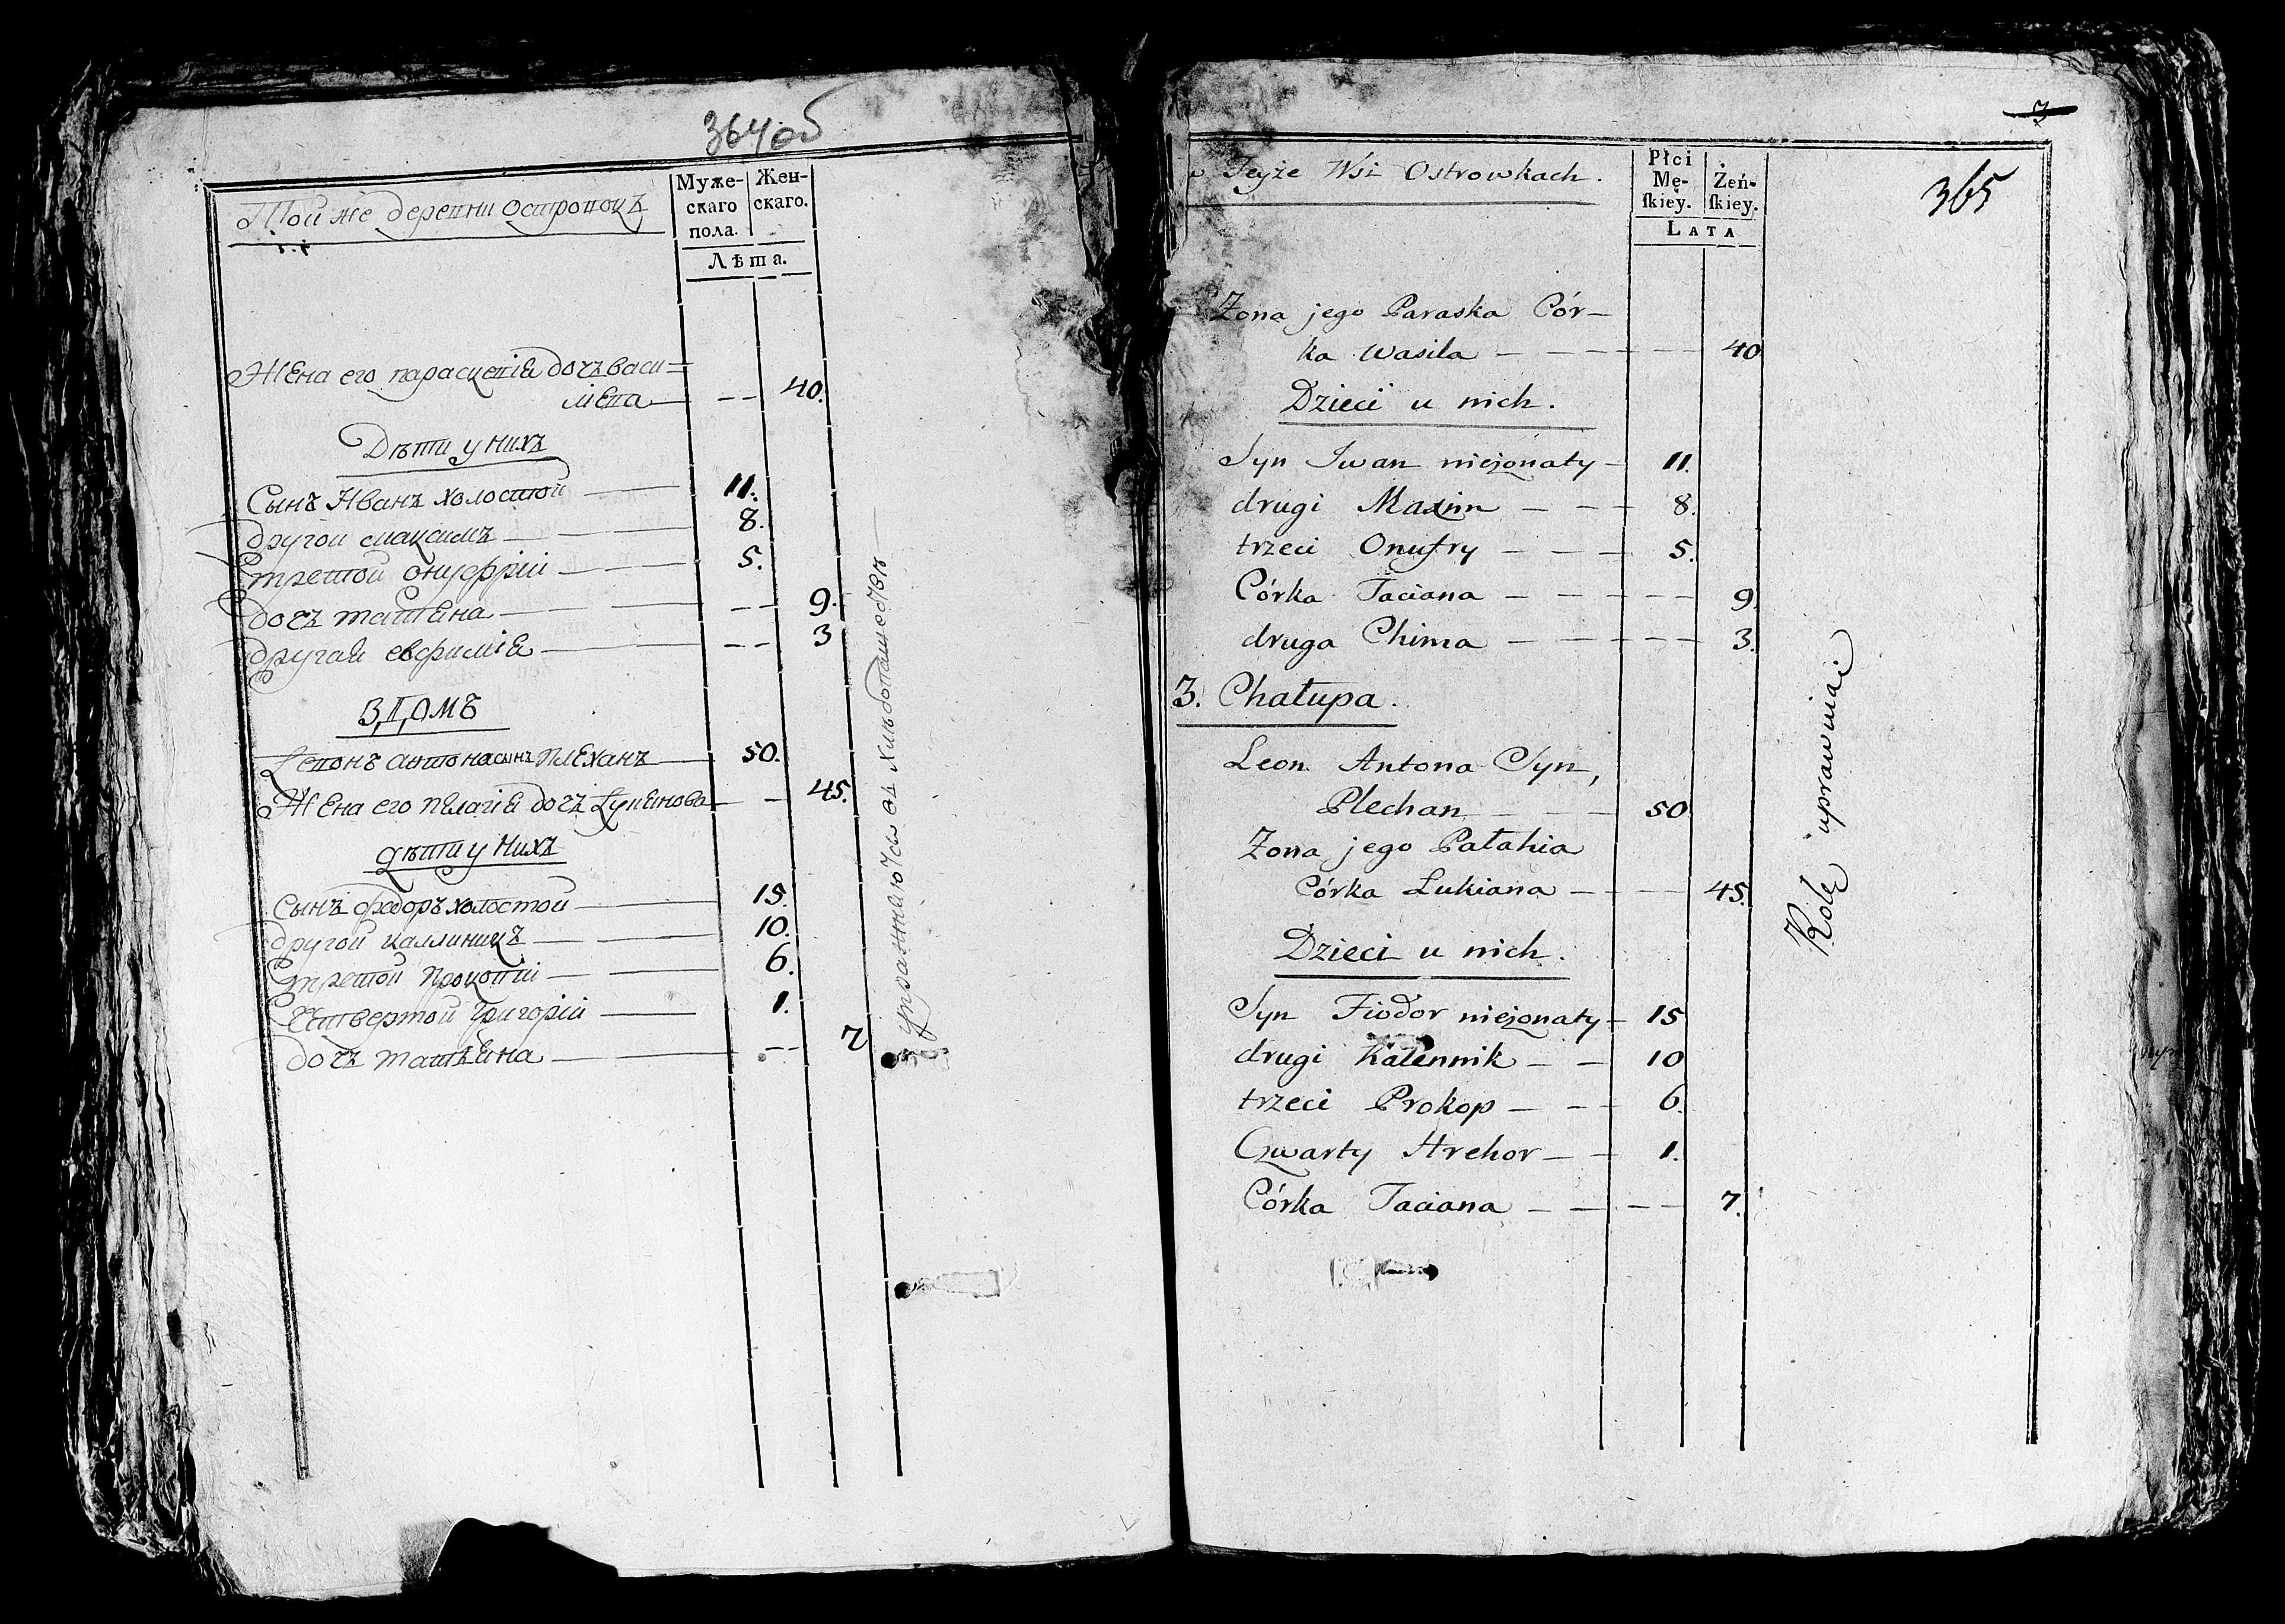 364 об
Той же деревни Островокъ
Муже-
скаго
пола.
Жен-
скаго.
Лѣта.
Жена его парасцевія дочь васи=
лїева — 40.
Дѣти у нихъ
Сынъ Иванъ холостой — 11.
другой максимъ — 8.
третой онуфрій — 5.
дочь татьяна — 9.
другая евфимія — 3
3, Д, ОМЪ
Левонъ антона сынъ плеханъ — 50.
Жена его пелагія дочь Лукьянова — 45.
дѣти у нихъ
Сынъ федоръ холостой — 15.
другой каллиникъ — 10.
третой прокопій — 6.
Четвертой Григорій — 1.
дочь татьяна — 7
упражняются въ хлѣбопашествѣ
3
365
w Teyże Wsi Ostrowkach.
Płci
Mę-
skiey.
Żeń-
skiey.
LATA
Żona jego Paraska Cór-
ka Wasila — 40
Dzieci u nich.
Syn Iwan nieżonaty — 11.
drugi Maxim — 8.
trzeci Onufry — 5.
Córka Taciana — 9
druga Chima — 3.
3. Chałupa.
Leon Antona Syn,
Plechan — 50
Żona jego Pałahia
Córka Łukiana — 45.
Dzieci u nich.
Syn Fiodor nieżonaty — 15
drugi Kalennik — 10
trzeci Prokop — 6.
Czwarty Hrehor — 1.
Córka Taciana — 7.
Rolę uprawniai